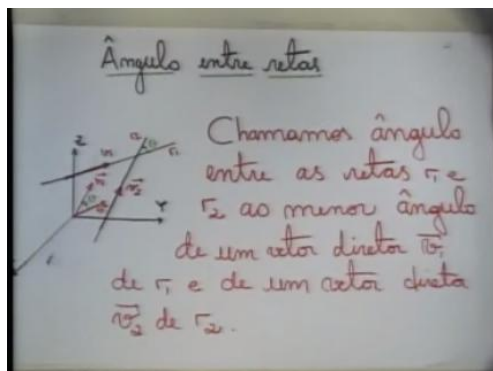 Ângulo entre retas
Chamamos ângulo
entre as retas r₁ e
r₂ ao menor ângulo
de um vetor diretor v⃗₁
de r₁ e de um vetor diretor
v⃗₂ de r₂.
Z
r₂
θ
r₁
v⃗₁
v⃗₂
θ
Y